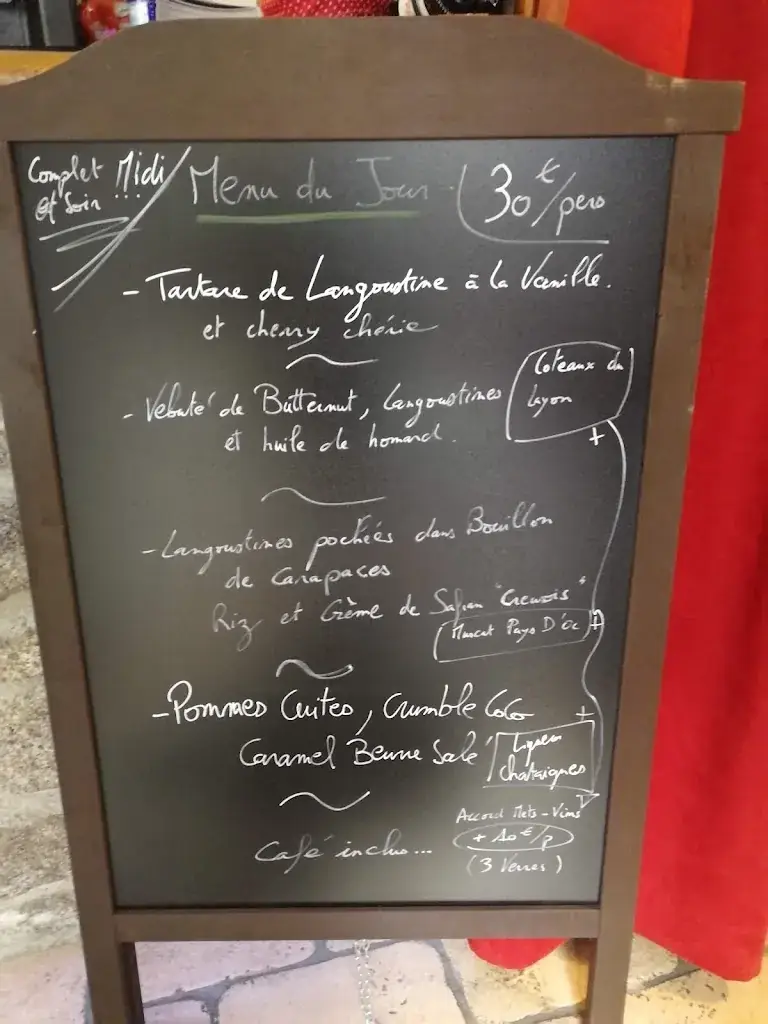 Complet Midi
et Soir ...
Menu du Jour
30€/pers
- Tartare de Langoustine à la Vanille.
et cherry chérie
- Velouté de Butternut, Langoustines
et huile de homard.
Coteaux du
Layon
+
- Langoustines pochées dans Bouillon
de Carapaces
Riz et Crème de Safran "Creusois"
Muscat Pays D'Oc
+
- Pommes Cuites, Crumble Coco
Caramel Beurre Salé
+
Liqueur
chataignes
Café inclus...
Accord Mets-Vins
+ 10€/p
(3 Verres)